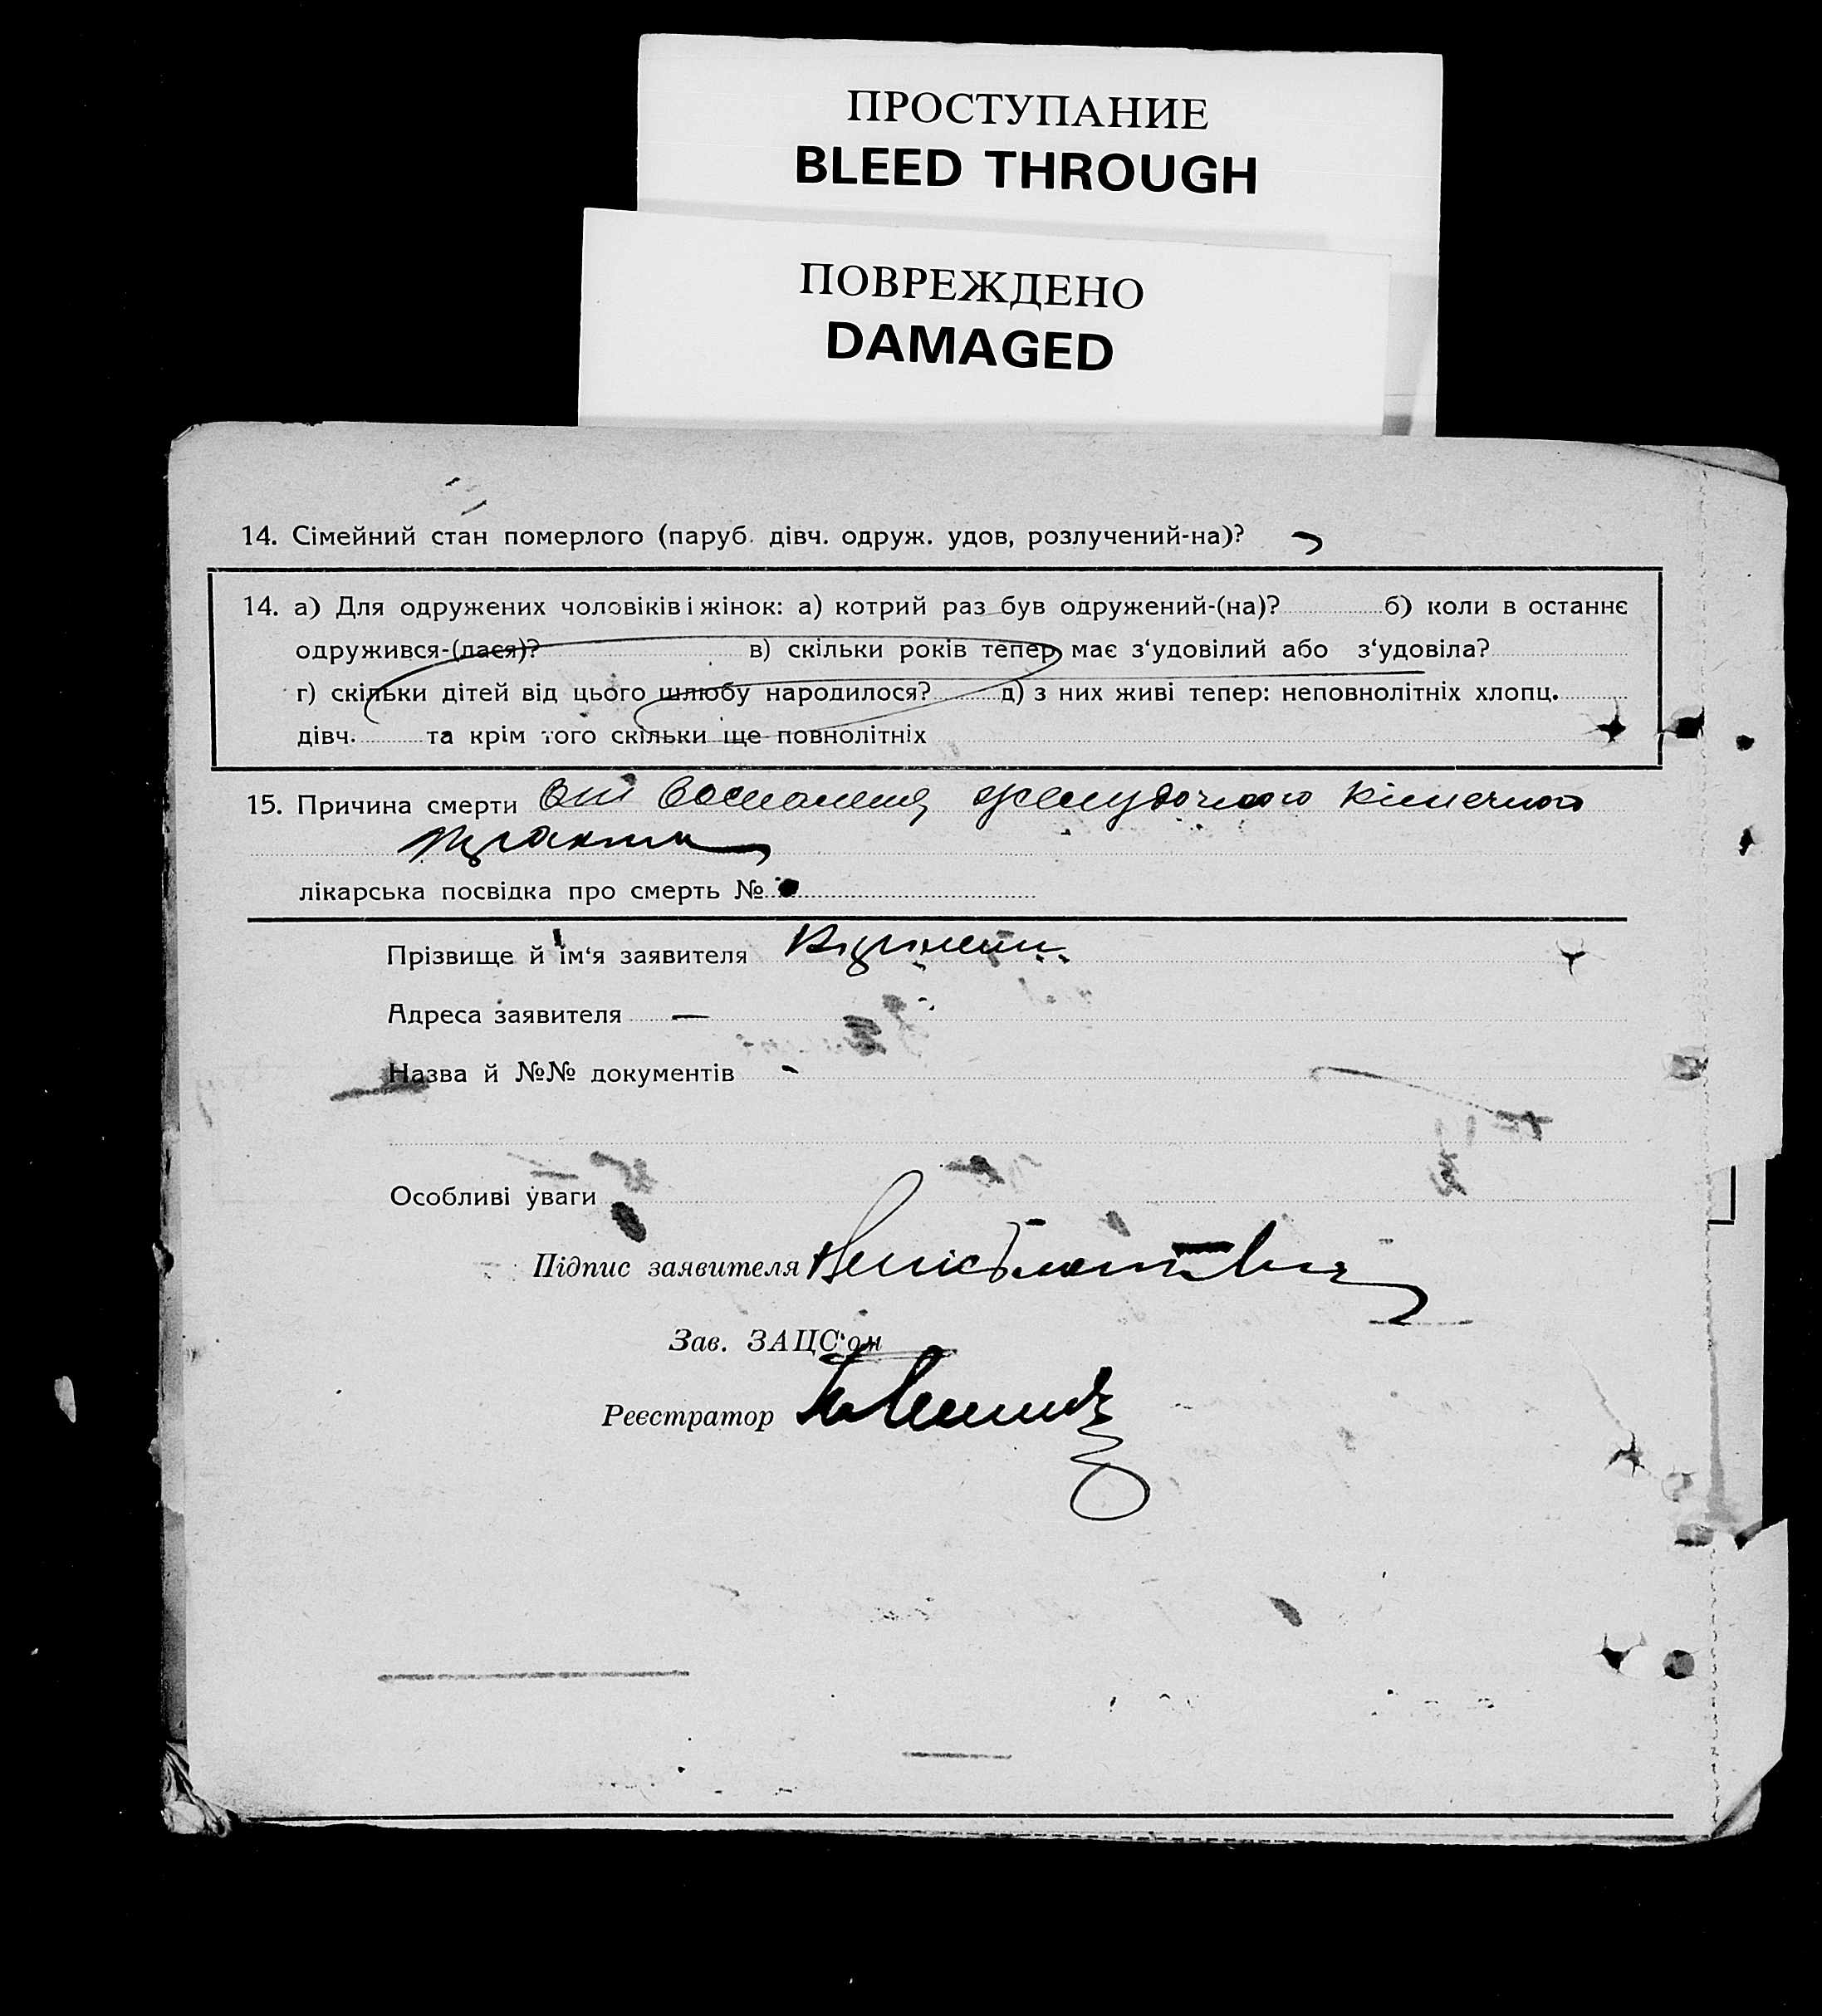 ПРОСТУПАНИЕ
BLEED THROUGH
ПОВРЕЖДЕНО
DAMAGED
14. Сімейний стан померлого (паруб. дівч. одруж. удов, розлучений-на)?
14. а) Для одружених чоловіків і жінок: а) котрий раз був одружений-(на)? б) коли в останнє
одружився-(лася)? в) скільки років тепер має з‘удовілий або з‘удовіла?
г) скільки дітей від цього шлюбу народилося? д) з них живі тепер: неповнолітніх хлопц.
дівч. та крім того скільки ще повнолітніх
15. Причина смерти От воспаления желудочного кишечного
тракта
лікарська посвідка про смерть №
Прізвище й ім‘я заявителя
Адреса заявителя —
Назва й №№ документів -
Особливі уваги
Підпис заявителя
Зав. ЗАЦС‘ом
Реєстратор